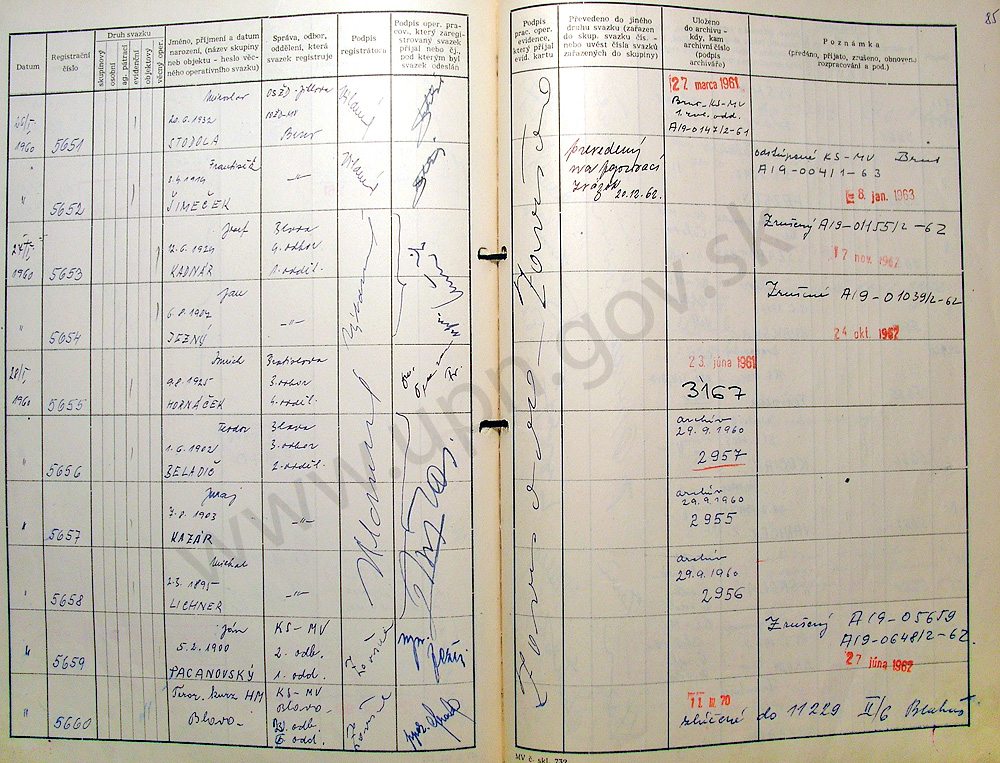 85
Datum
Registrační číslo
Druh svazku
skupinový
osobní
ag. pátrací
evidenční
objektový
věcný oper.
Jméno, příjmení a datum
narození, (název skupiny
neb objektu - heslo věc-
ného operativního svazku)
Správa, odbor,
oddělení, která
svazek registruje
Podpis
registrátora
Podpis oper. pra-
cov., který zaregi-
strovaný svazek
přijal nebo čj.,
pod kterým byl
svazek odeslán
Podpis
prac. oper.
evidence,
který přijal
evid. kartu
Převedeno do jiného
druhu svazku (zařazen
do skup. svazku čís. -
nebo uvést čísla svazků
zařazených do skupiny)
Uloženo
do archivu -
kdy, kam
archivní číslo
(podpis
archiváře)
Poznámka
(předáno, přijato, zrušeno, obnoveno
rozpracování a pod.)
1960
5651
Miroslav
20.6.1932
STODOLA
Brno
27 marca 1961
Brno-KS-MV
A19-0147/2-61
"
5652
František
ŠIMEČEK
-"-
prevedený
na pozorovací
zväzok
20.12.62.
odstúpené KS-MV Brno
A19-0041-63
8. jan. 1963
1960
5653
Jozef
12.6.1929
KADNÁR
Blava
4. odbor
1. oddel.
Zrušený A19-01155/2-62
17 nov. 1962
"
5654
Jan
6.8.1907
JEZNÝ
-"-
Zrušené A19-01039/2-62
24 okt. 1962
28/5
1960
5655
Imrich
9.8.1925
HORNÁČEK
Bratislava
3. odbor
4. oddel.
23. júna 1961
3167
"
5656
Teodor
1.6.1902
BELADIČ
Blava
3. odbor
2. oddel.
archív
29.9.1960
2957
"
5657
Juraj
7.8.1903
KAZÁR
-"-
archív
29.9.1960
2955
"
5658
Michal
2.3.1895
LICHNER
-"-
archív
29.9.1960
2956
"
5659
Ján
5.2.1900
PACANOVSKÝ
KS-MV
2. odb.
1. odd.
Zrušený A19-05659
A19-0648/2-62
27 júna 1962
"
5660
Teror. kurz HM
Blava
KS-MV
Blava
odd.
11. III. 70
zlúčené do 11229 II/6
MV č. skl. 732
www.upn.gov.sk